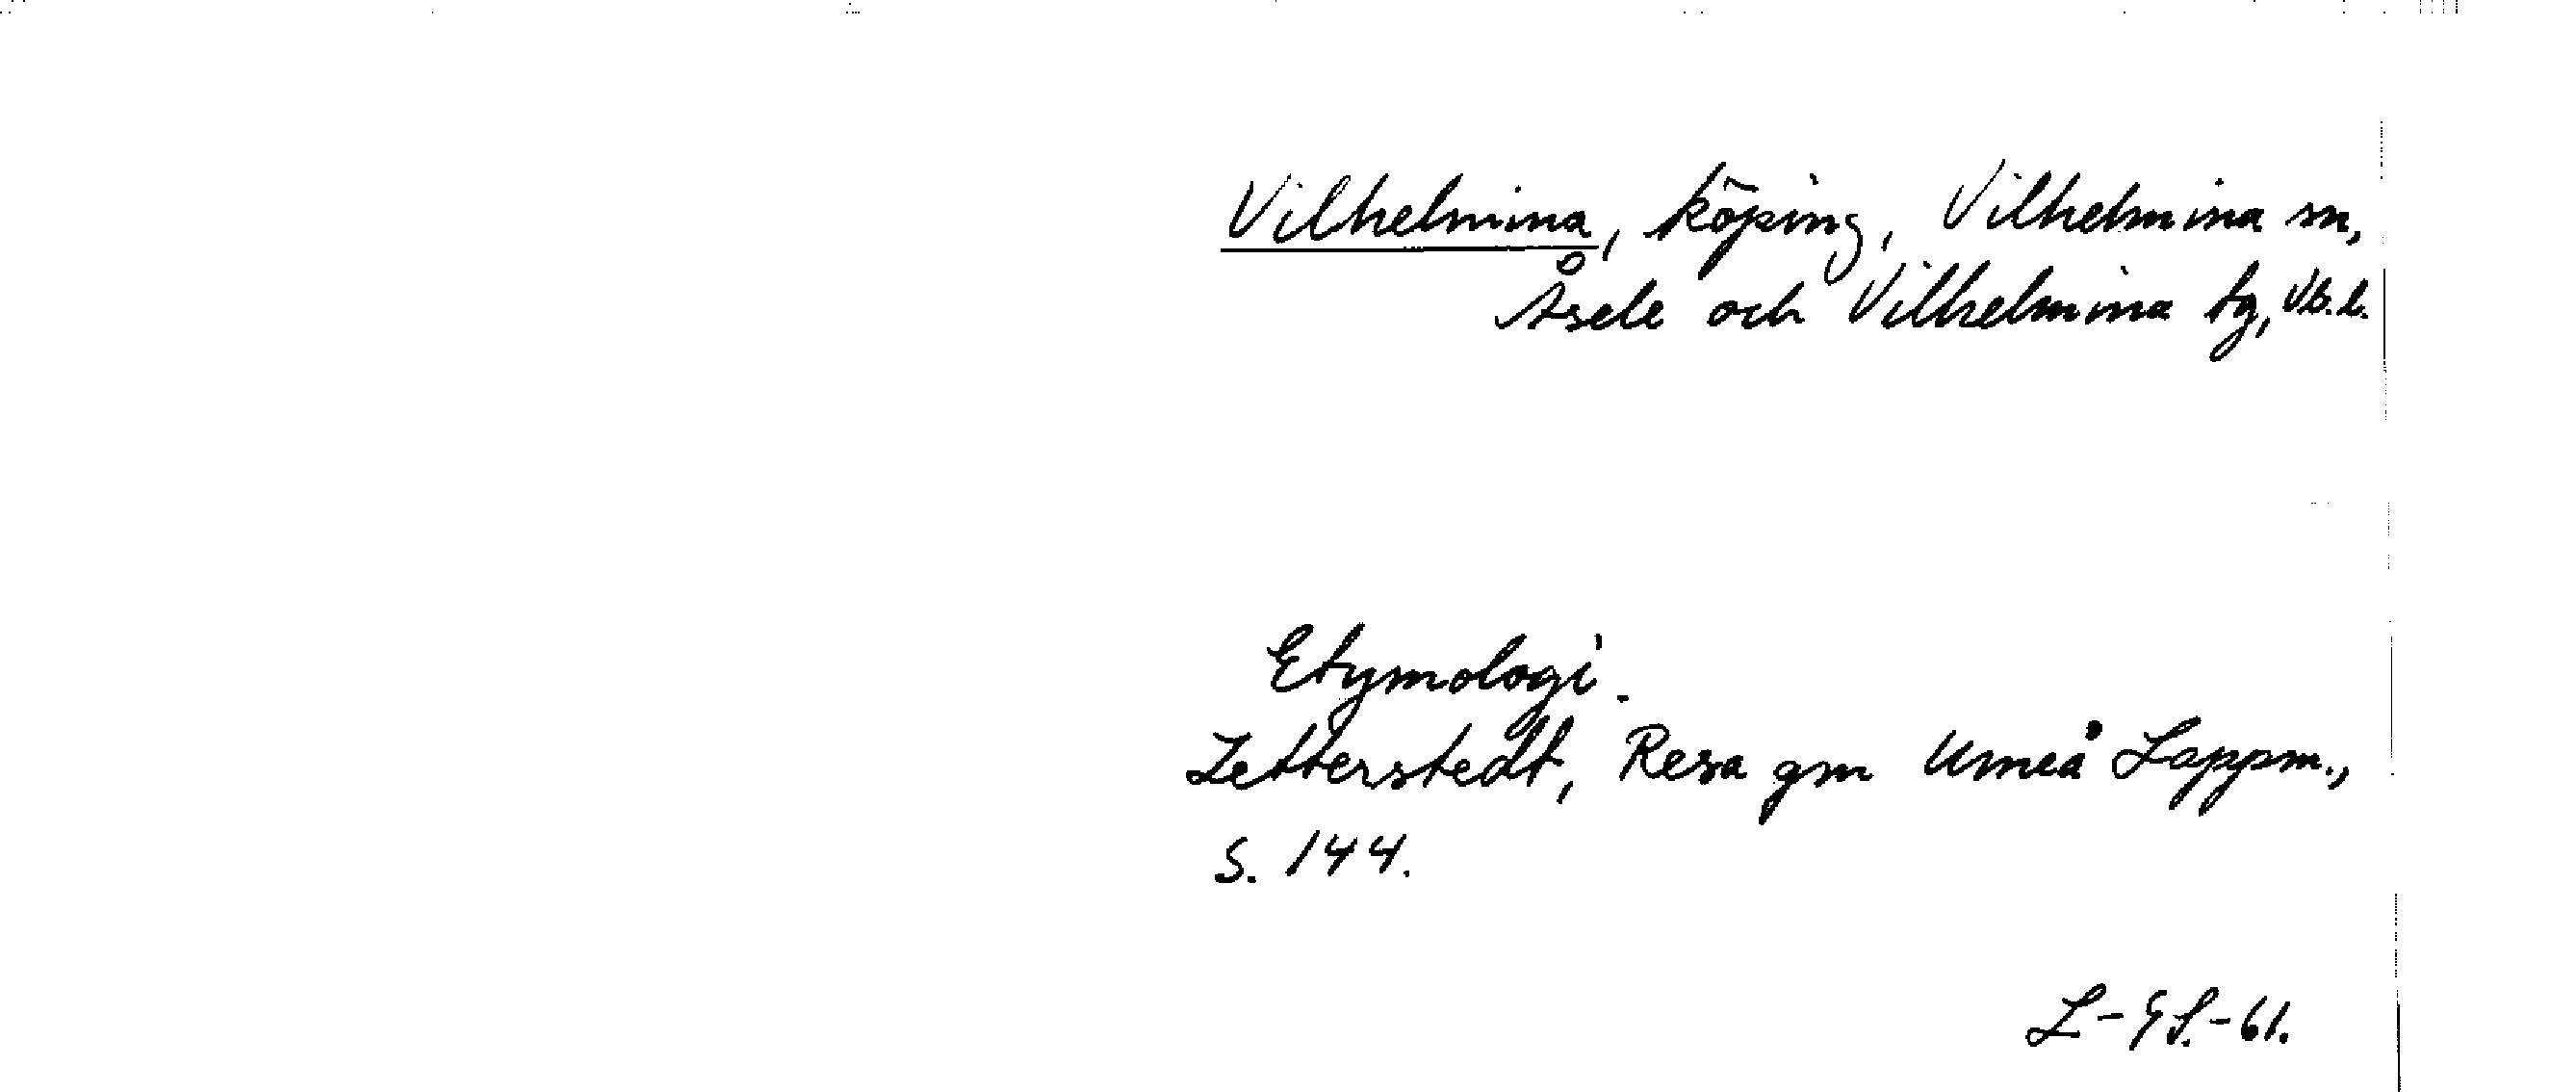 Vilhelmina, köping, Vilhelmina sn,
Åsele och Vilhelmina tg, Vb.l.
Etymologi.
Zetterstedt, Resa gm Umeå Lappm.,
S. 144.